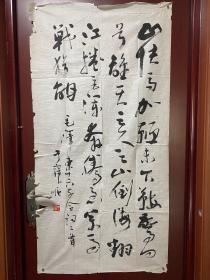 山快马加鞭未下鞍驚回
首離天三尺三山倒海翻
江捲巨澜奔騰急万马
戰猶酣
毛澤东十六字令词二首